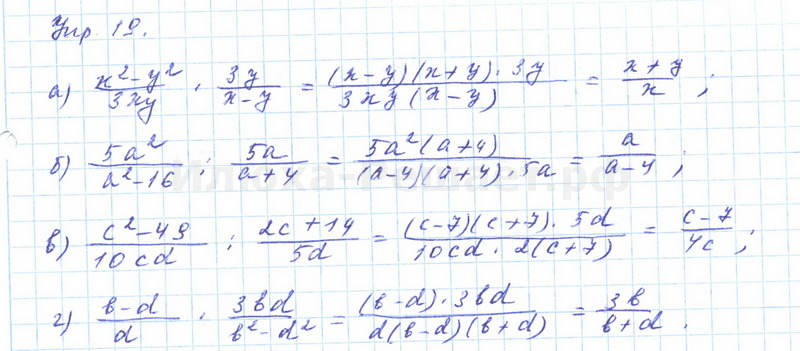 Упр. 19.
а) x²-y²/3xy · 3y/x-y = (x-y)(x+y)·3y/3xy(x-y) = x+y/x ;
б) 5a²/a²-16 : 5a/a+4 = 5a²(a+4)/(a-4)(a+4)·5a = a/a-4 ;
в) c²-49/10cd : 2c+14/5d = (c-7)(c+7)·5d/10cd·2(c+7) = c-7/4c ;
г) b-d/d · 3bd/b²-d² = (b-d)·3bd/d(b-d)(b+d) = 3b/b+d .